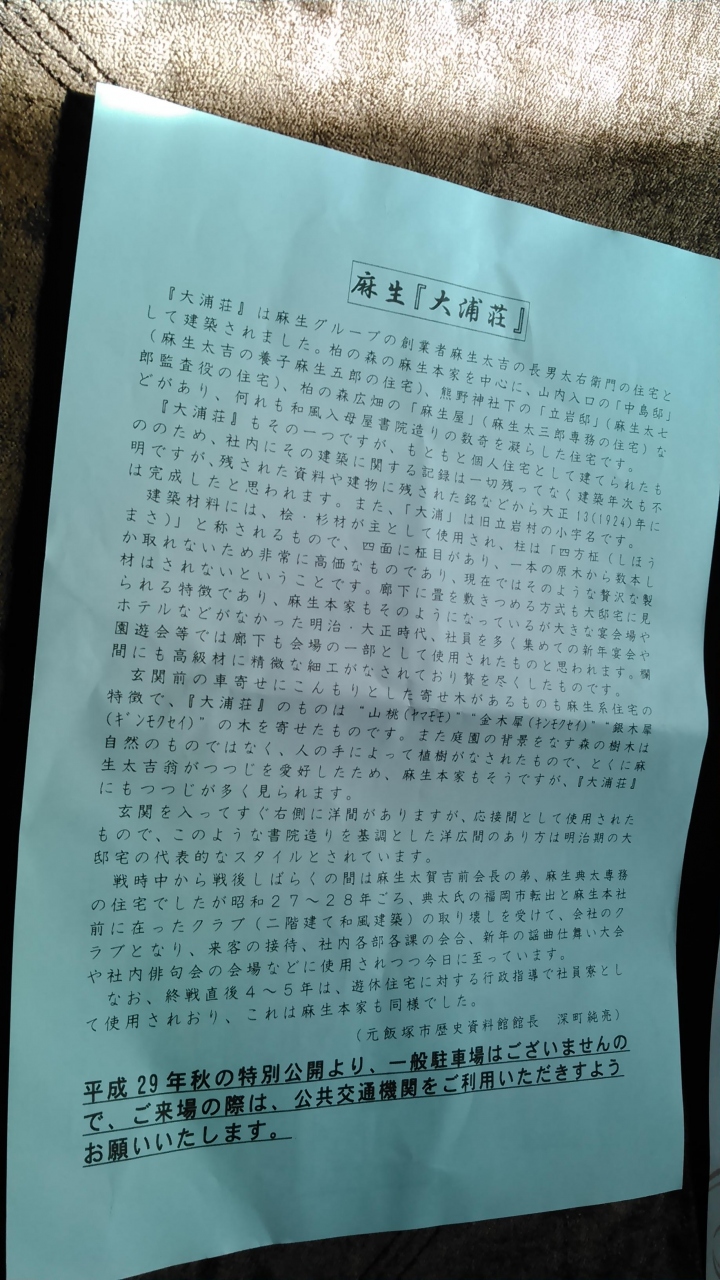 麻生『大浦荘』
『大浦荘』は麻生グループの創業者麻生太吉の長男太右衛門の住宅と
して建築されました。柏の森の麻生本家を中心に、山内入口の「中島邸」
（麻生太吉の養子麻生五郎の住宅）、熊野神社下の「立岩邸」（麻生太七
郎監査役の住宅）、柏の森広畑の「麻生屋」（麻生太三郎専務の住宅）な
どがあり、何れも和風入母屋書院造りの数奇を凝らした住宅です。
『大浦荘』もその一つですが、もともと個人住宅として建てられたも
ののため、社内にその建築に関する記録は一切残ってなく建築年次も不
明ですが、残された資料や建物に残された銘などから大正13(1924)年に
は完成したと思われます。また、「大浦」は旧立岩村の小字名です。
建築材料には、桧・杉材が主として使用され、柱は「四方柾（しほう
まさ）」と称されるもので、四面に柾目があり、一本の原木から数本し
か取れないため非常に高価なものであり、現在ではそのような贅沢な製
材はされないということです。廊下に畳を敷きつめる方式も大邸宅に見
られる特徴であり、麻生本家もそのようになっているが大きな宴会場や
ホテルなどがなかった明治・大正時代、社員を多く集めての新年宴会や
園遊会等では廊下も会場の一部として使用されたものと思われます。欄
間にも高級材に精微な細工がなされており贅を尽くしたものです。
玄関前の車寄せにこんもりとした寄せ木があるものも麻生系住宅の
特徴で、『大浦荘』のものは “山桃(ヤマモモ)” “金木犀(キンモクセイ)” “銀木犀
(ギンモクセイ)” の木を寄せたものです。また庭園の背景をなす森の樹木は
自然のものではなく、人の手によって植樹がなされたもので、とくに麻
生太吉翁がつつじを愛好したため、麻生本家もそうですが、『大浦荘』
にもつつじが多く見られます。
玄関を入ってすぐ右側に洋間がありますが、応接間として使用された
もので、このような書院造りを基調とした洋広間のあり方は明治期の大
邸宅の代表的なスタイルとされています。
戦時中から戦後しばらくの間は麻生太賀吉前会長の弟、麻生典太専務
の住宅でしたが昭和２７～２８年ごろ、典太氏の福岡市転出と麻生本社
前に在ったクラブ（二階建て和風建築）の取り壊しを受けて、会社のク
ラブとなり、来客の接待、社内各部各課の会合、新年の謡曲仕舞い大会
や社内俳句会の会場などに使用されつつ今日に至っています。
なお、終戦直後４～５年は、遊休住宅に対する行政指導で社員寮とし
て使用されおり、これは麻生本家も同様でした。
（元飯塚市歴史資料館館長　深町純亮）
平成 29 年秋の特別公開より、一般駐車場はございませんの
で、ご来場の際は、公共交通機関をご利用いただきすよう
お願いいたします。